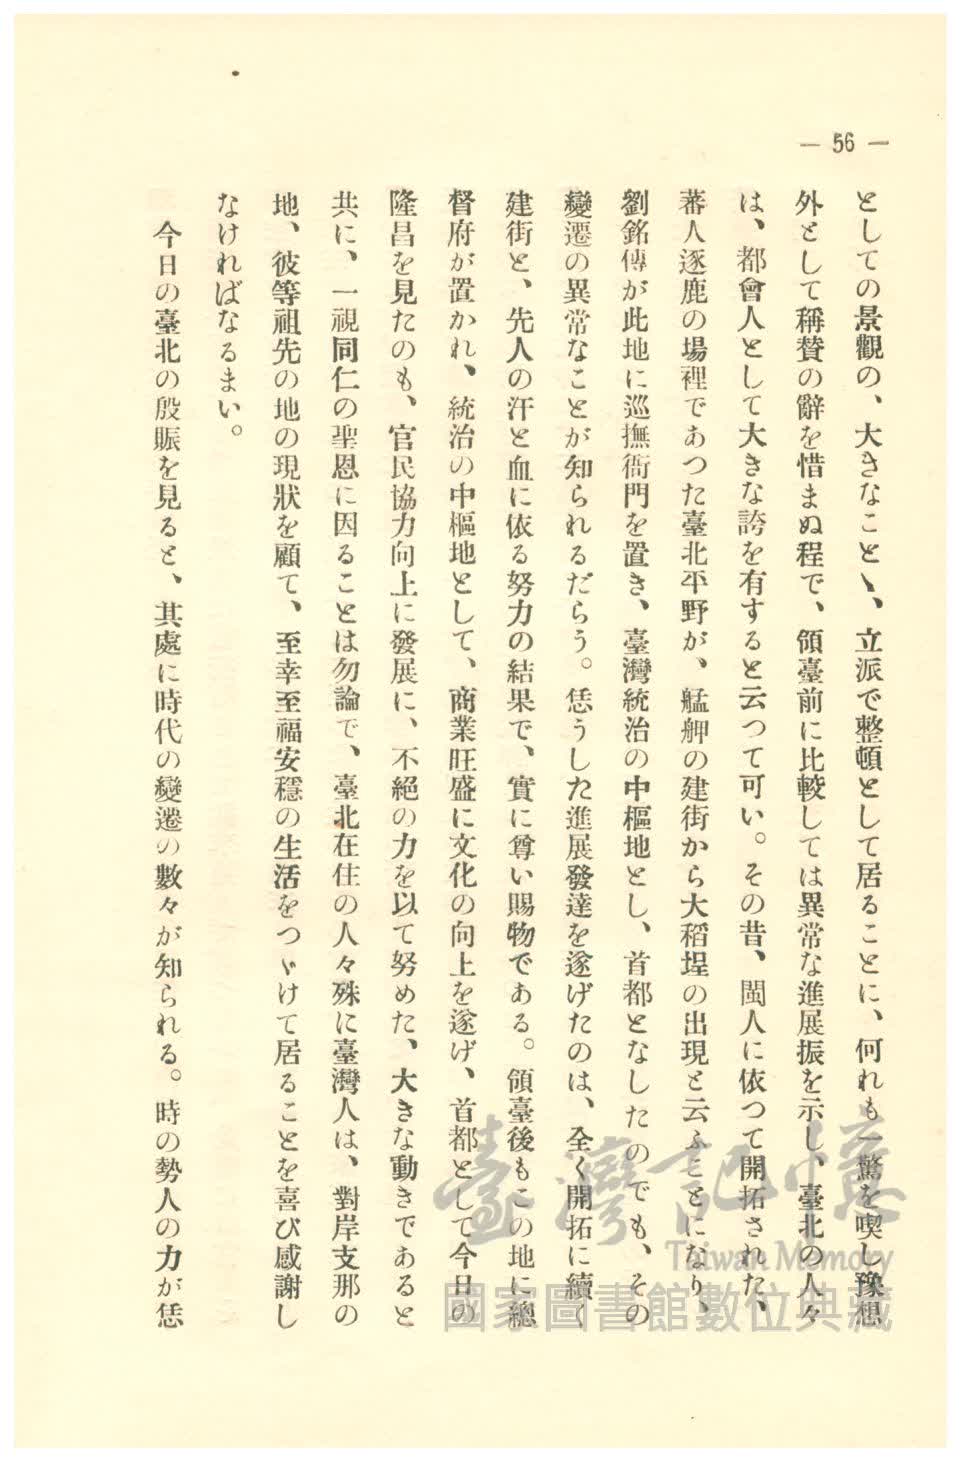 — 56 —
としての景觀の、大きなことゝ、立派で整頓として居ることに、何れも一驚を喫し豫想
外として稱賛の辭を惜まぬ程で、領臺前に比較しては異常な進展振を示し、臺北の人々
は、都會人として大きな誇を有すると云つて可い。その昔、閩人に依つて開拓された、
蕃人逐鹿の場裡であつた臺北平野が、艋舺の建街から大稻埕の出現と云ふことになり、
劉銘傳が此地に巡撫衙門を置き、臺灣統治の中樞地とし、首都となしたのでも、その
變遷の異常なことが知られるだらう。恁うした進展發達を遂げたのは、全く開拓に續く
建街と、先人の汗と血に依る努力の結果で、實に尊い賜物である。領臺後もこの地に總
督府が置かれ、統治の中樞地として、商業旺盛に文化の向上を遂げ、首都として今日の
隆昌を見たのも、官民協力向上に發展に、不絕の力を以て努めた、大きな動きであると
共に、一視同仁の聖恩に因ることは勿論で、臺北在住の人々殊に臺灣人は、對岸支那の
地、彼等祖先の地の現狀を顧て、至幸至福安穩の生活をつゞけて居ることを喜び感謝し
なければなるまい。
今日の臺北の殷賑を見ると、其處に時代の變遷の數々が知られる。時の勢人の力が恁
臺灣記憶
Taiwan Memory
國家圖書館數位典藏